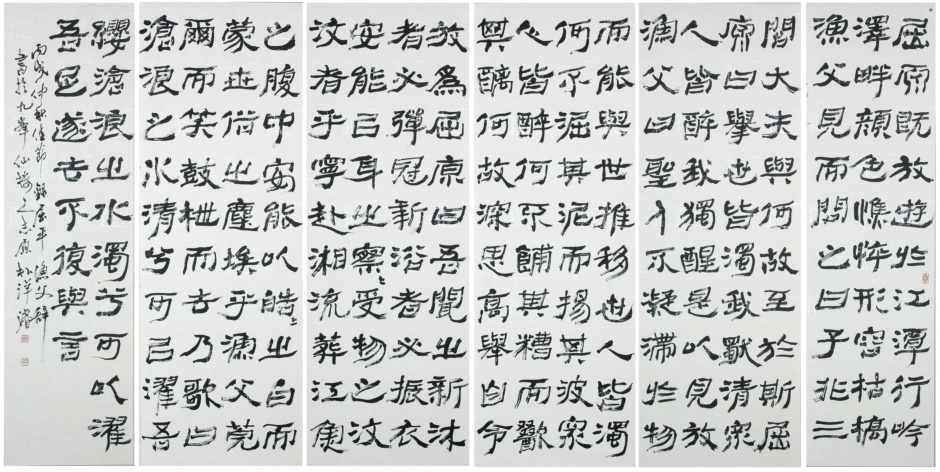 屈原既放遊於江潭行吟
澤畔顏色憔悴形容枯槁
漁父見而問之曰子非三
閭大夫與何故至於斯屈
原曰擧世皆濁我獨清衆
人皆醉我獨醒是以見放
漁父曰聖人不凝滯於物
而能與世推移世人皆濁
何不淈其泥而揚其波衆
人皆醉何不餔其糟而歠
其醨何故深思高擧自令
放爲屈原曰吾聞之新沐
者必彈冠新浴者必振衣
安能以身之察〻受物之汶
汶者乎寧赴湘流葬江魚
之腹中安能以皓〻之白而
蒙世俗之塵埃乎漁父莞
爾而笑鼓枻而去乃歌曰
滄浪之水清兮可以濯吾
纓滄浪之水濁兮可以濯
吾足遂去不復與言
丙戌仲秋佳節錄屈平漁父辭
書於九峯仙